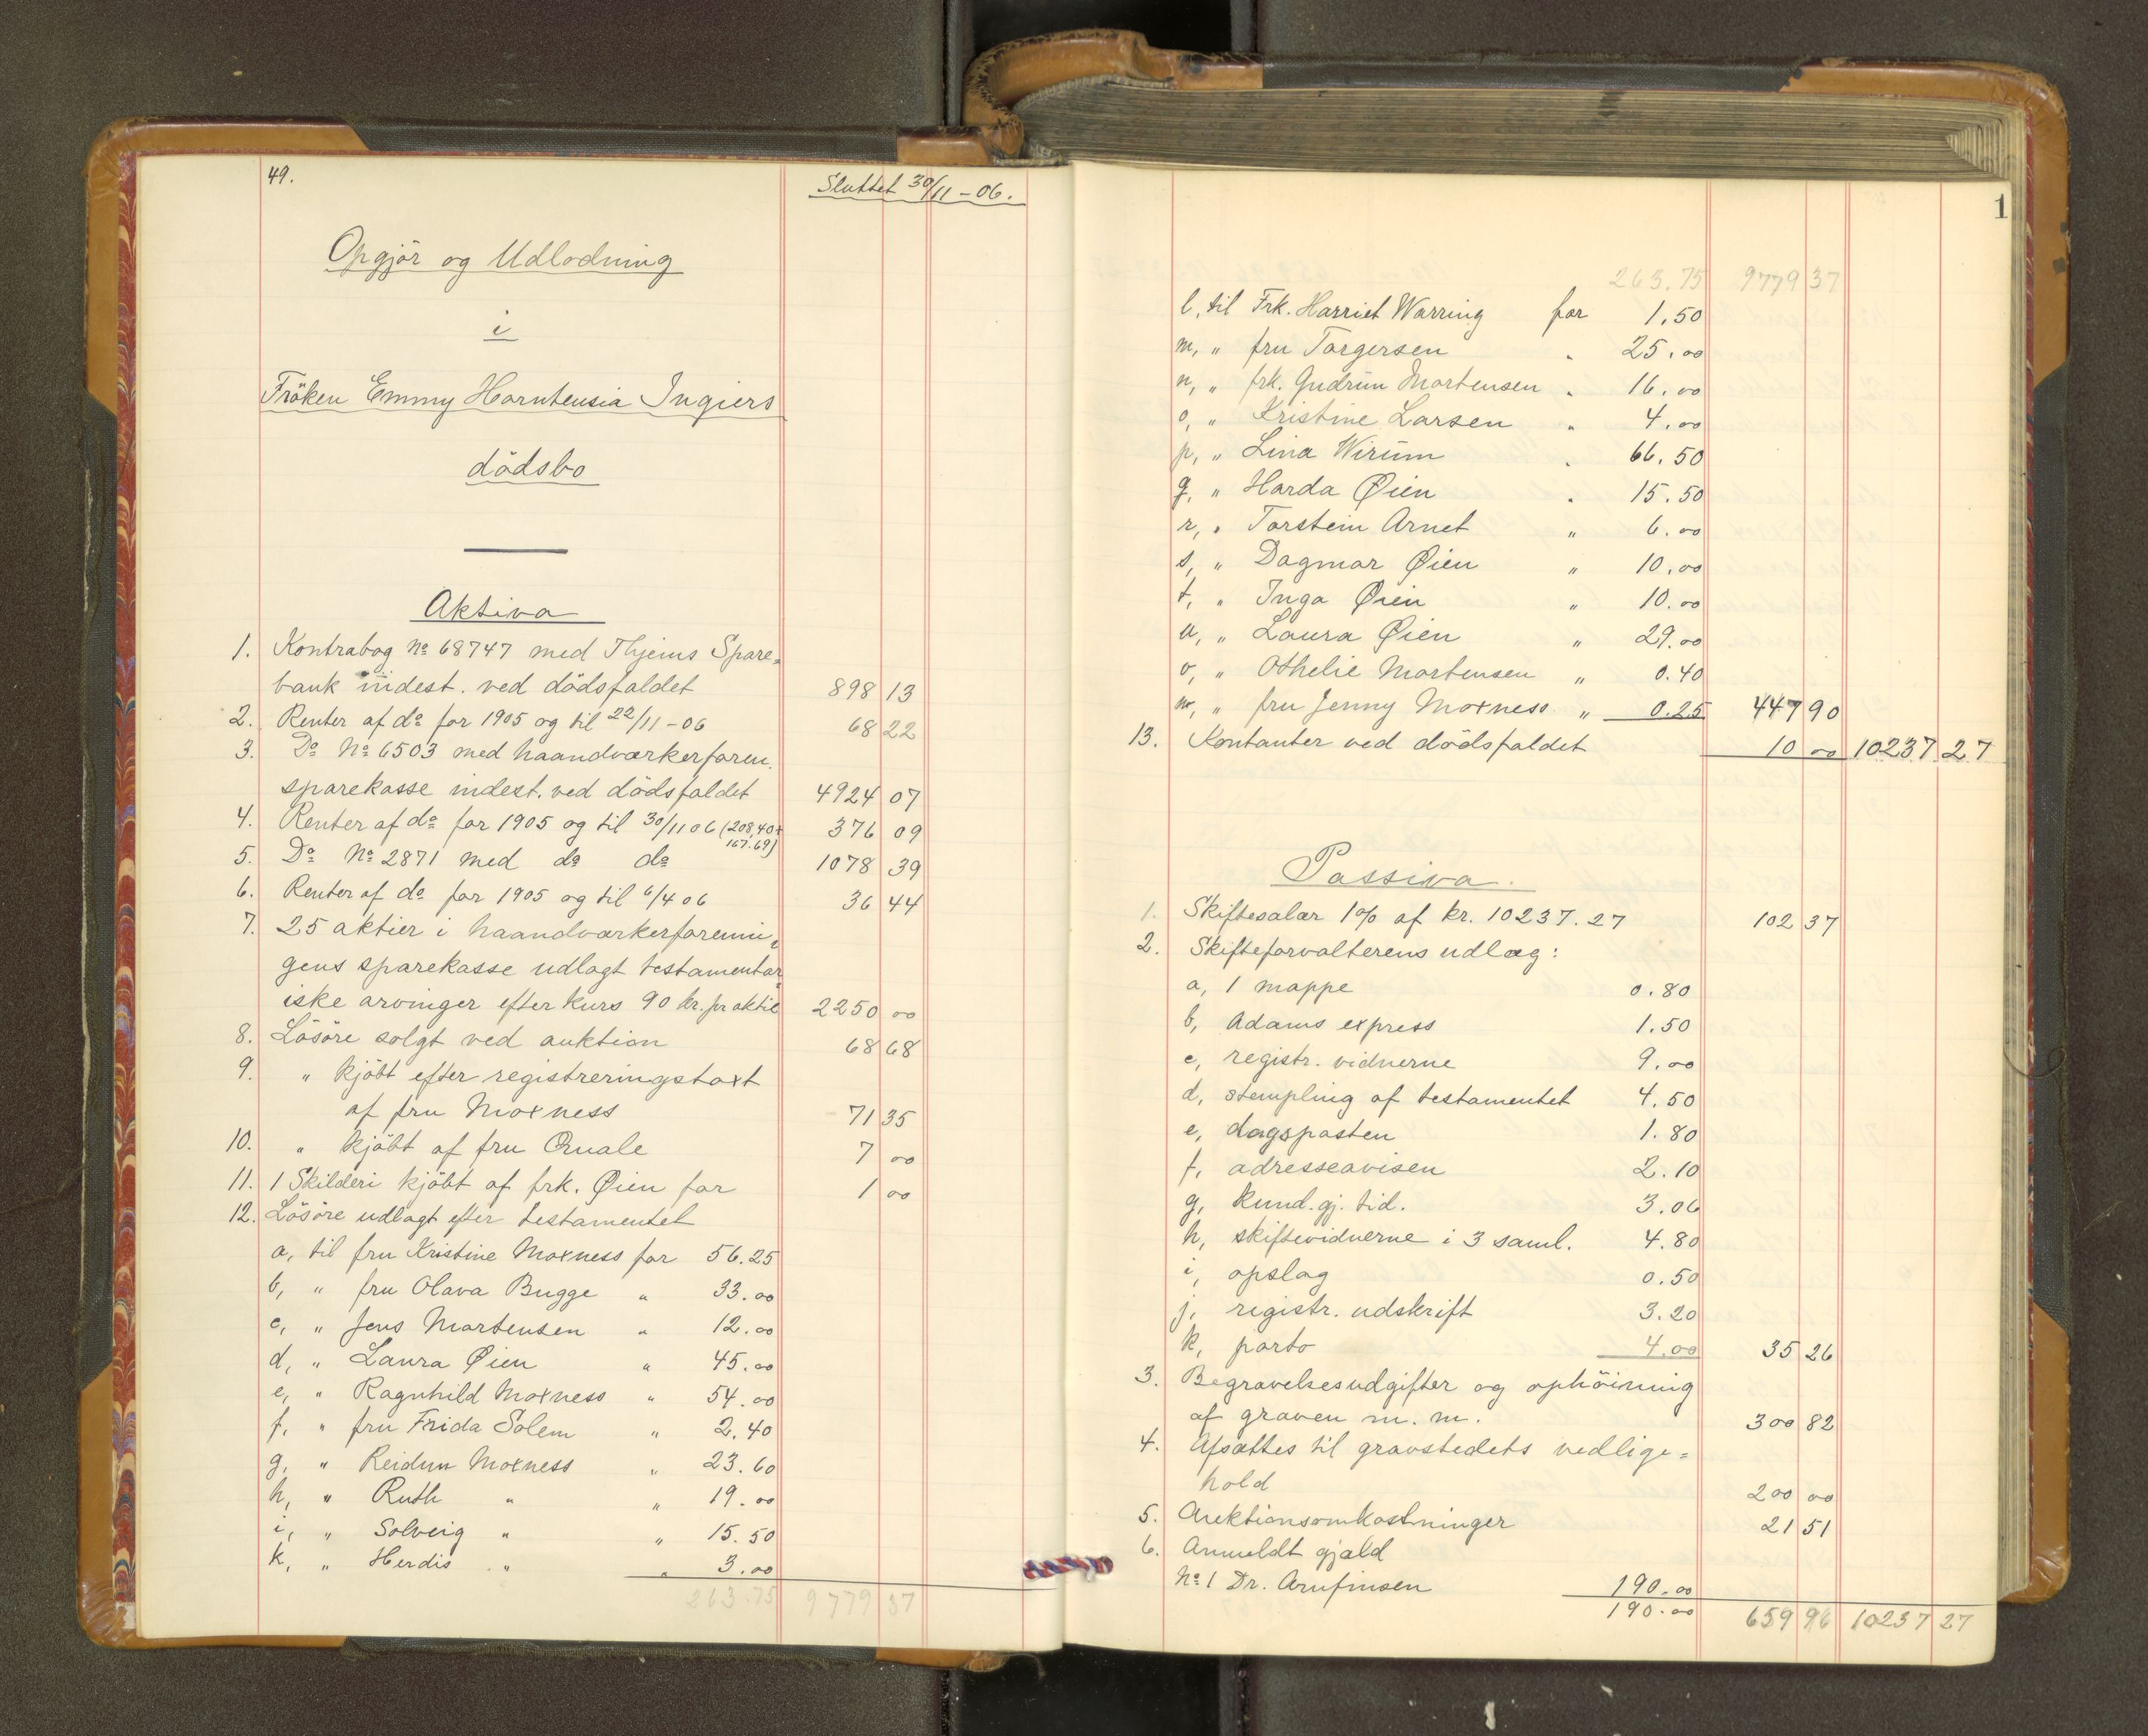 49.
Sluttet 30/11 - 06.
Opgjör og Udlodning
i
Fröken Emmy Horntensia Ingiers
dödsbo
Aktiva
1. Kontrabog No 68747 med Thjems Spare=
bank indest. ved dödsfaldet 898 13
2. Renter af do for 1905 og til 22/11 - 06 68 22
3. Do No 6503 med haandværkerforen.
sparekasse indest. ved dödsfaldet 4924 07
4. Renter af do for 1905 og til 30/11 06 (208,40+ 376 09
167.69)
5. Do No 2871 med do do 1078 39
6. Renter af do for 1905 og til 6/4 06 36 44
7. 25 aktier i haandværkerforenin=
gens sparekasse udlagt testamentar=
iske arvinger efter kurs 90 kr. pr aktie 2250 00
8. Lösöre solgt ved auktion 68 68
9. " kjöbt efter registreringstaxt
af fru Moxness 71 35
10. " kjöbt af fru Qvale 7 00
11. 1 Skilderi kjöbt af frk. Øien for 1 00
12. Lösöre udlagt efter testamentet
a, til fru Kristine Moxness for 56.25
b, " fru Olava Bugge " 33.00
c, " Jens Mortensen " 12.00
d, " Laura Øien " 45.00
e, " Ragnhild Moxness " 54.00
f, " fru Frida Solem " 2.40
g, " Reidun Moxness " 23.60
h, " Ruth " " 19.00
i, " Solveig " " 15.50
k, " Herdis " " 3.00
263.75 9779 37
1
263.75 9779 37
l, til Frk. Harriet Warring for 1.50
m, " fru Torgersen " 25.00
n, " frk. Gudrun Mortensen " 16.00
o, " Kristine Larsen " 4.00
p, " Lina Wirum " 66.50
q, " Harda Øien " 15.50
r, " Torstein Arnet " 6.00
s, " Dagmar Øien " 10.00
t, " Inga Øien " 10.00
u, " Laura Øien " 29.00
v, " Othelie Mortensen " 0.40
w, " fru Jenny Moxness " 0.25 447 90
13. Kontanter ved dödsfaldet 10 00 10237 27
Passiva.
1. Skiftesalær 1% af kr. 10237.27 102 37
2. Skifteforvalterens udlæg:
a, 1 mappe 0.80
b, Adams express 1.50
c, registr. vidnerne 9.00
d, stempling af testamentet 4.50
e, dagsposten 1.80
f, adresseavisen 2.10
g, kund. gj. tid. 3.06
h, skiftevidnerne i 3 saml. 4.80
i, opslag 0.50
j, registr. udskrift 3.20
k, porto 4.00 35 26
3. Begravelsesudgifter og ophöining
af graven m. m. 300 82
4. Afsættes til gravstedets vedlige=
hold 200 00
5. Auktionsomkostninger 21 51
6. Anmeldt gjæld
No 1 Dr. Arnfinsen 190.00
190.00 659 96 10237 27